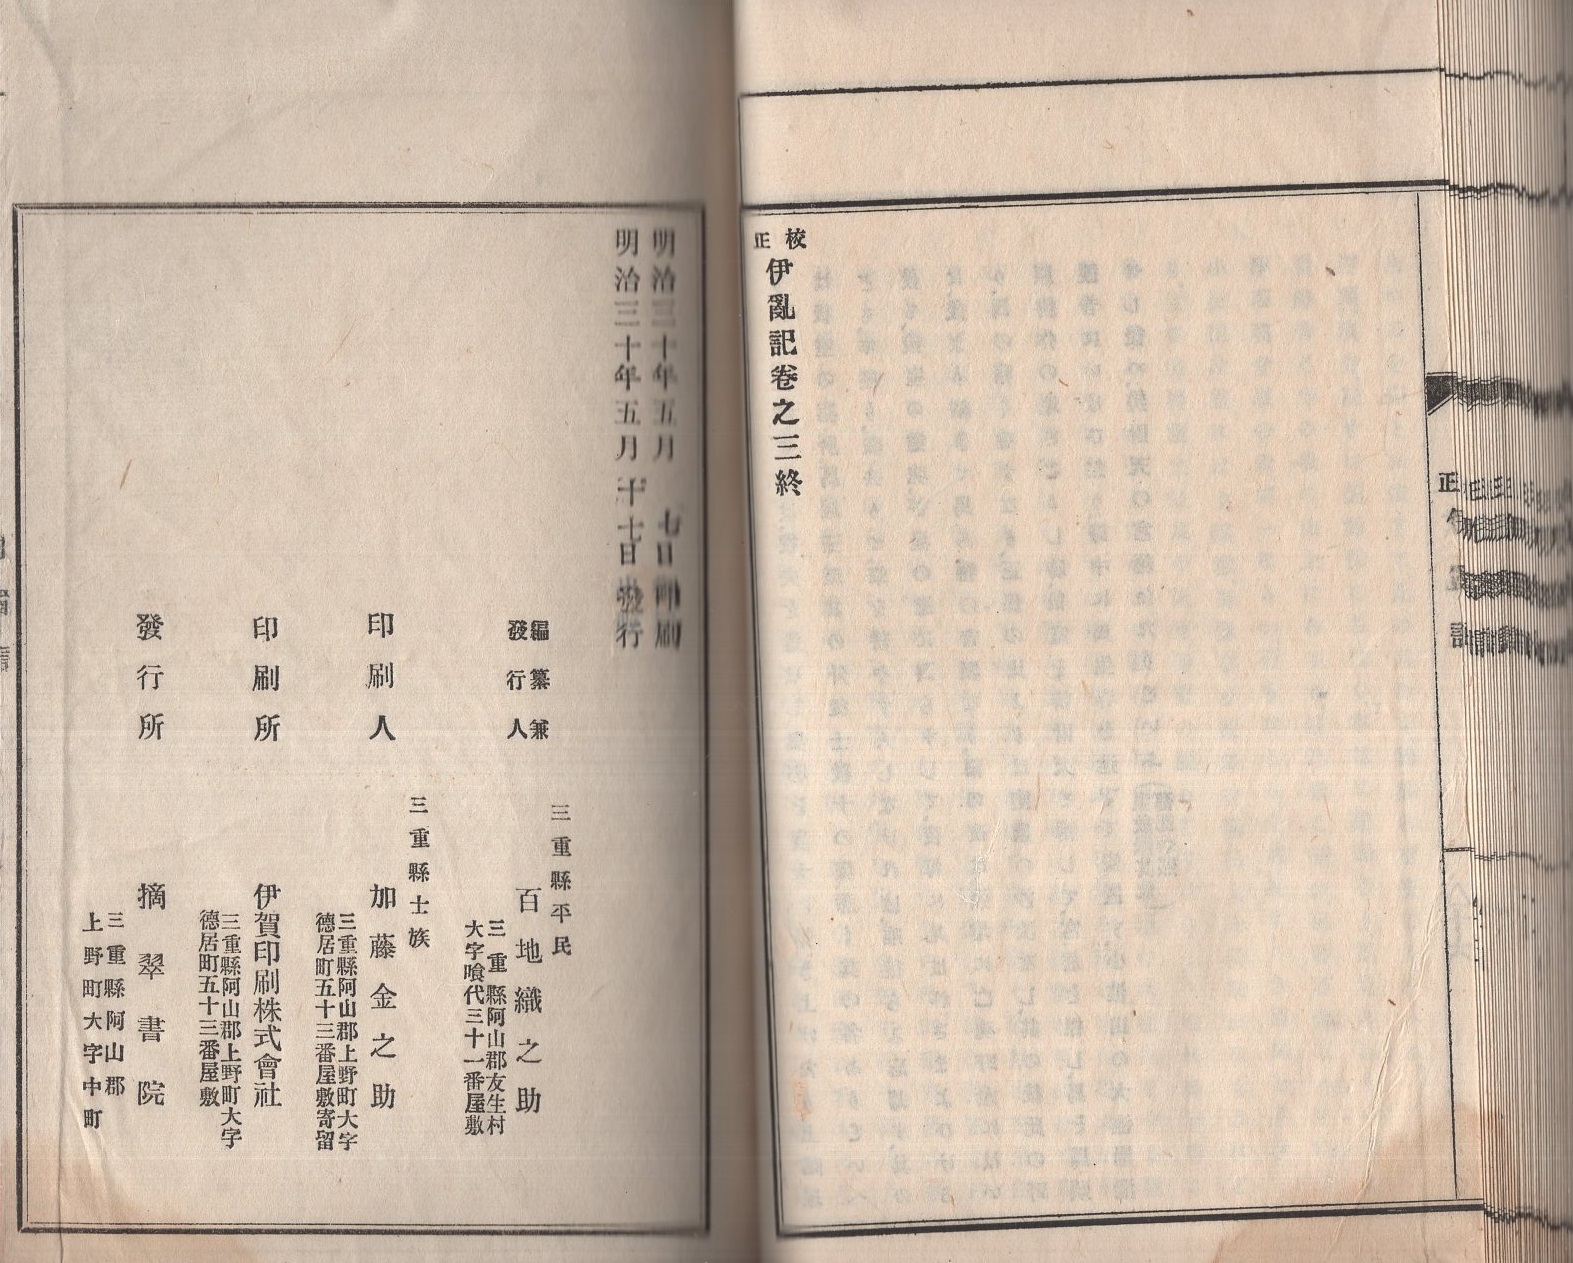 校正
伊亂記卷之三終
明治三十年五月 七日印刷
明治三十年五月十七日發行
編纂兼
發行人
三重縣平民
百地織之助
三重縣阿山郡友生村
大字喰代三十一番屋敷
印刷人
三重縣士族
加藤金之助
三重縣阿山郡上野町大字
德居町五十三番屋敷寄留
印刷所
伊賀印刷株式會社
三重縣阿山郡上野町大字
德居町五十三番屋敷
發行所
摘翠書院
三重縣阿山郡
上野町大字中町